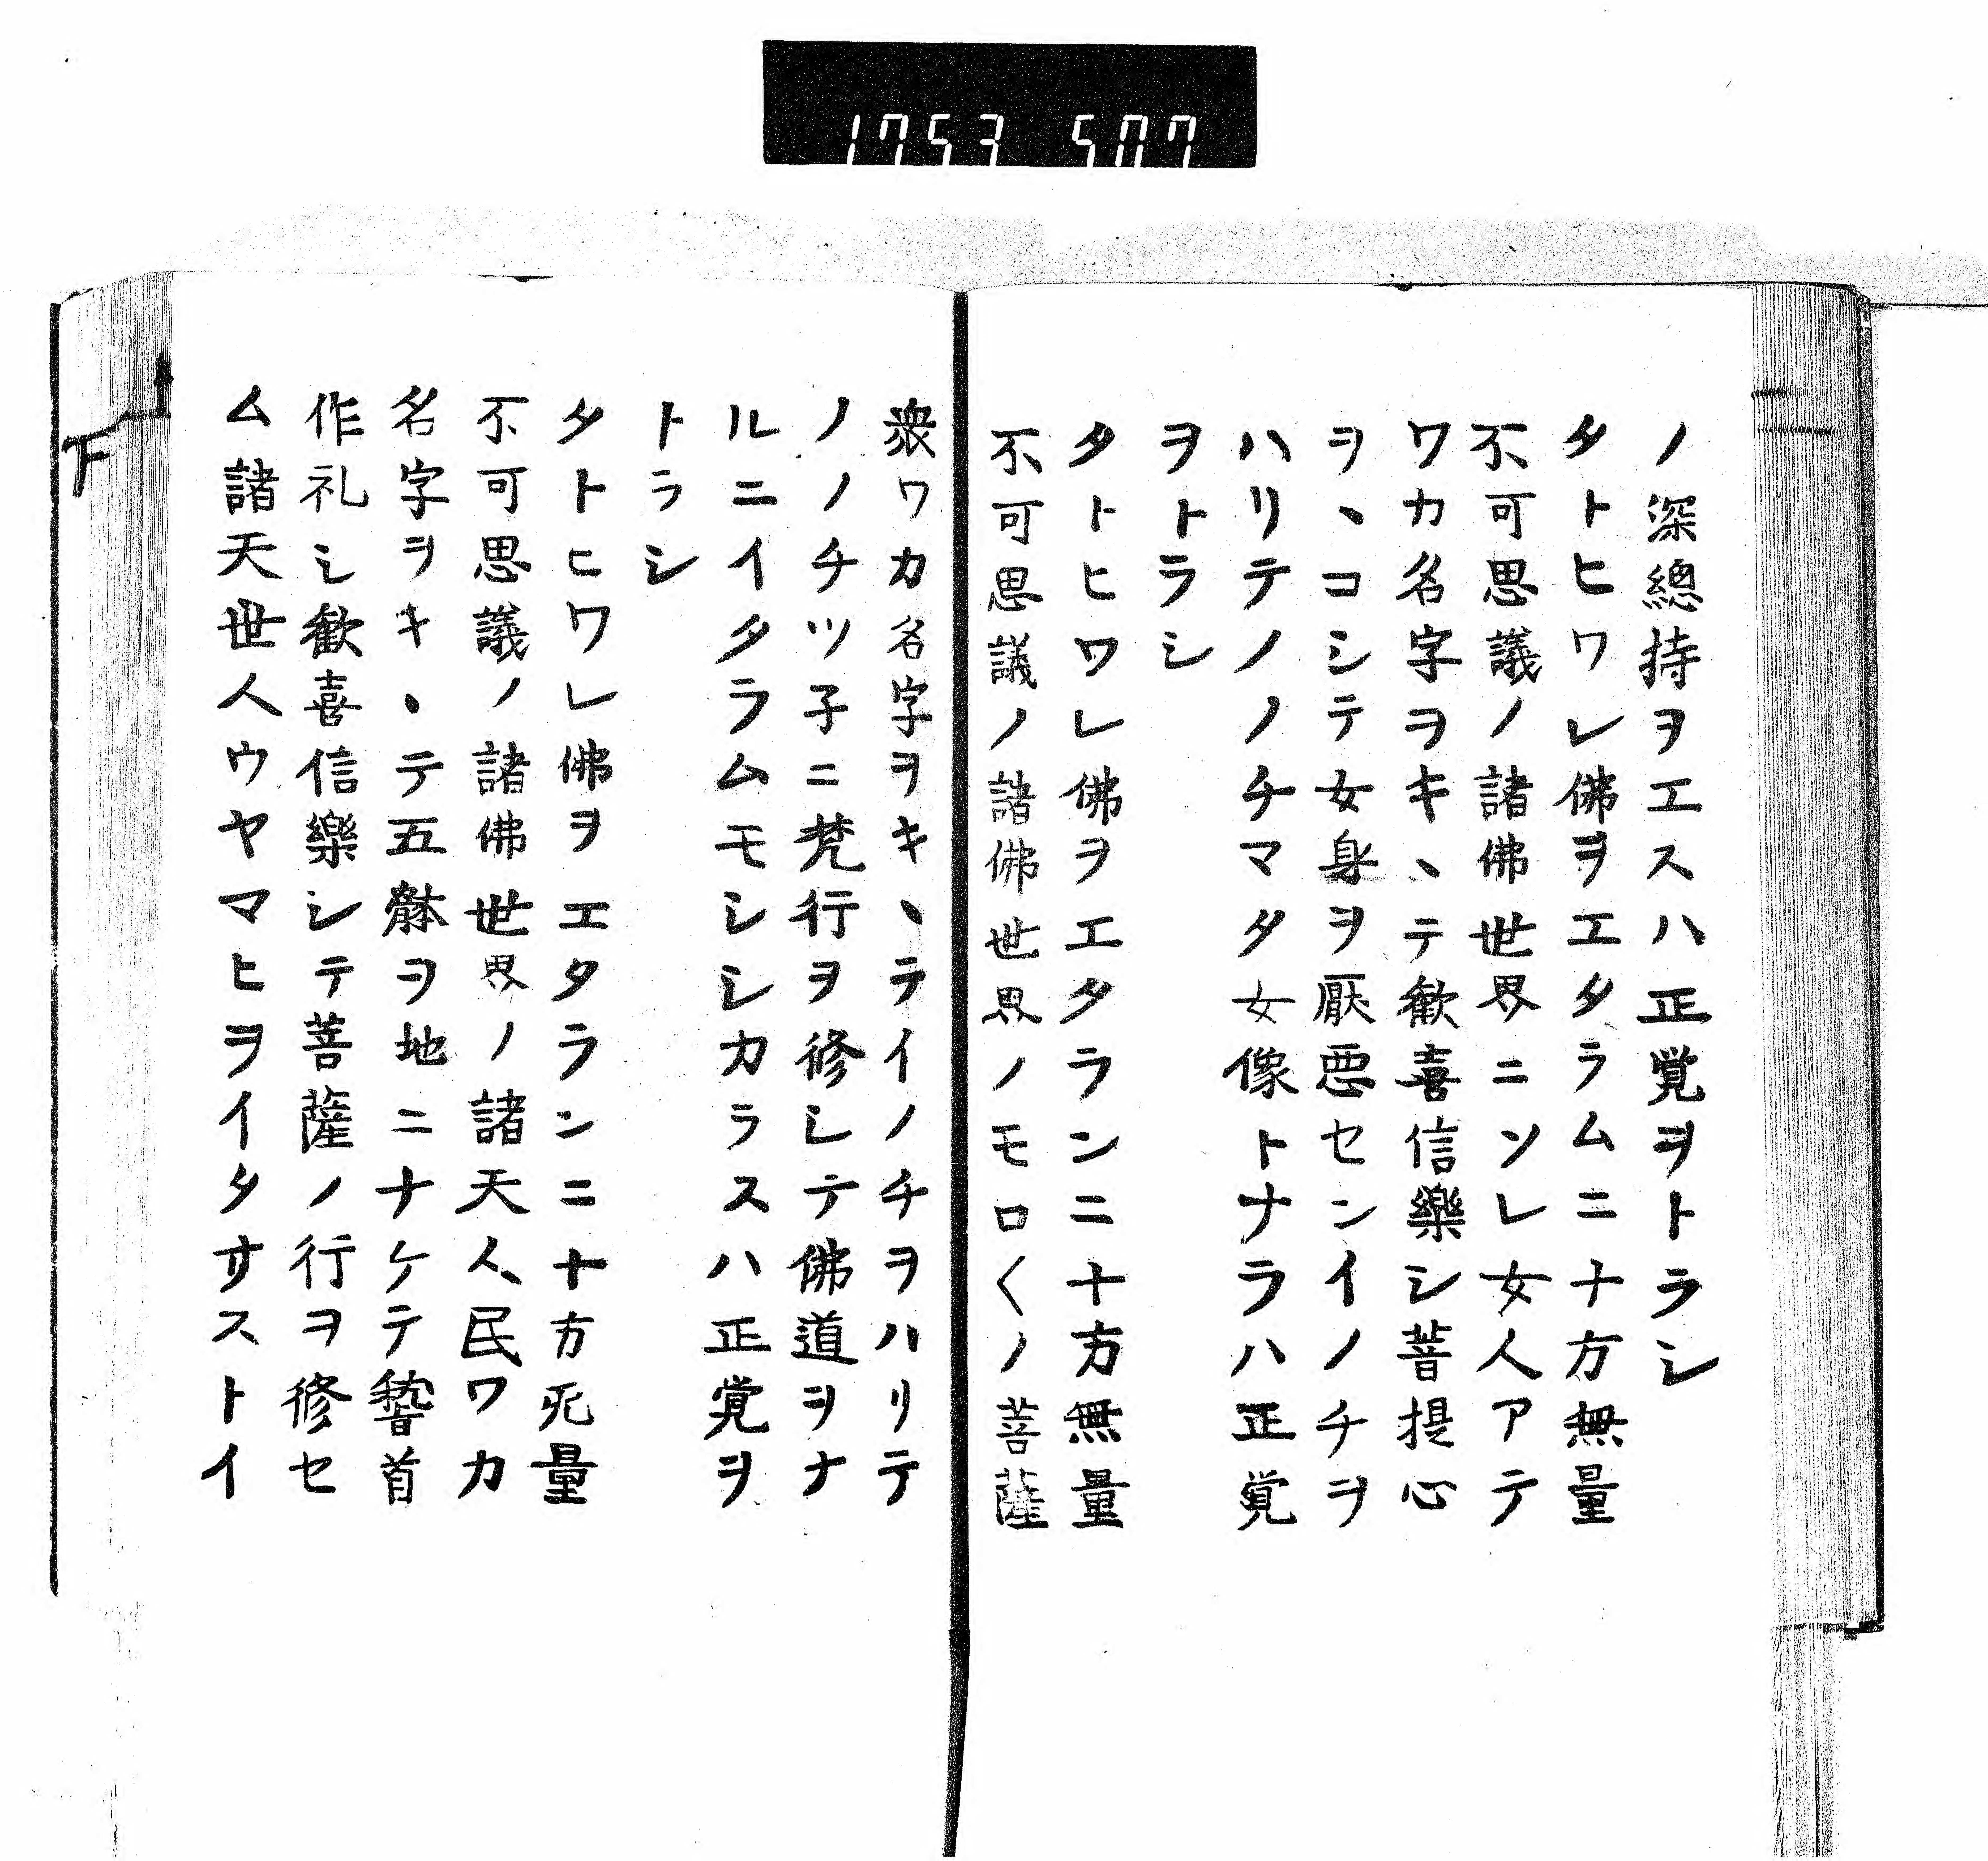 1753 507
ノ深總持ヲエスハ正覚ヲトラシ
タトヒワレ佛ヲエタラムニナ方無量
不可思議ノ諸佛世界ニソレ女人アテ
ワカ名字ヲキヽテ歓喜信樂シ菩提心
ヲヽコシテ女身ヲ厭悪センイノチヲ
ハリテノノチマタ女像トナラハ正覚
ヲトラシ
タトヒワレ佛ヲエタランニ十方無量
不可思議ノ諸佛世界ノモロ〱ノ菩薩
衆ワカ名字ヲキヽテイノチヲハリテ
ノノチツ子ニ梵行ヲ修シテ佛道ヲナ
ルニイタラムモシシカラスハ正覚ヲ
トラシ
タトヒワレ佛ヲエタランニ十方无量
不可思議ノ諸佛世界ノ諸天人民ワカ
名字ヲキヽテ五躰ヲ地ニナケテ稽首
作礼シ歓喜信樂シテ菩薩ノ行ヲ修セ
ム諸天世人ウヤマヒヲイタサストイ
上
下